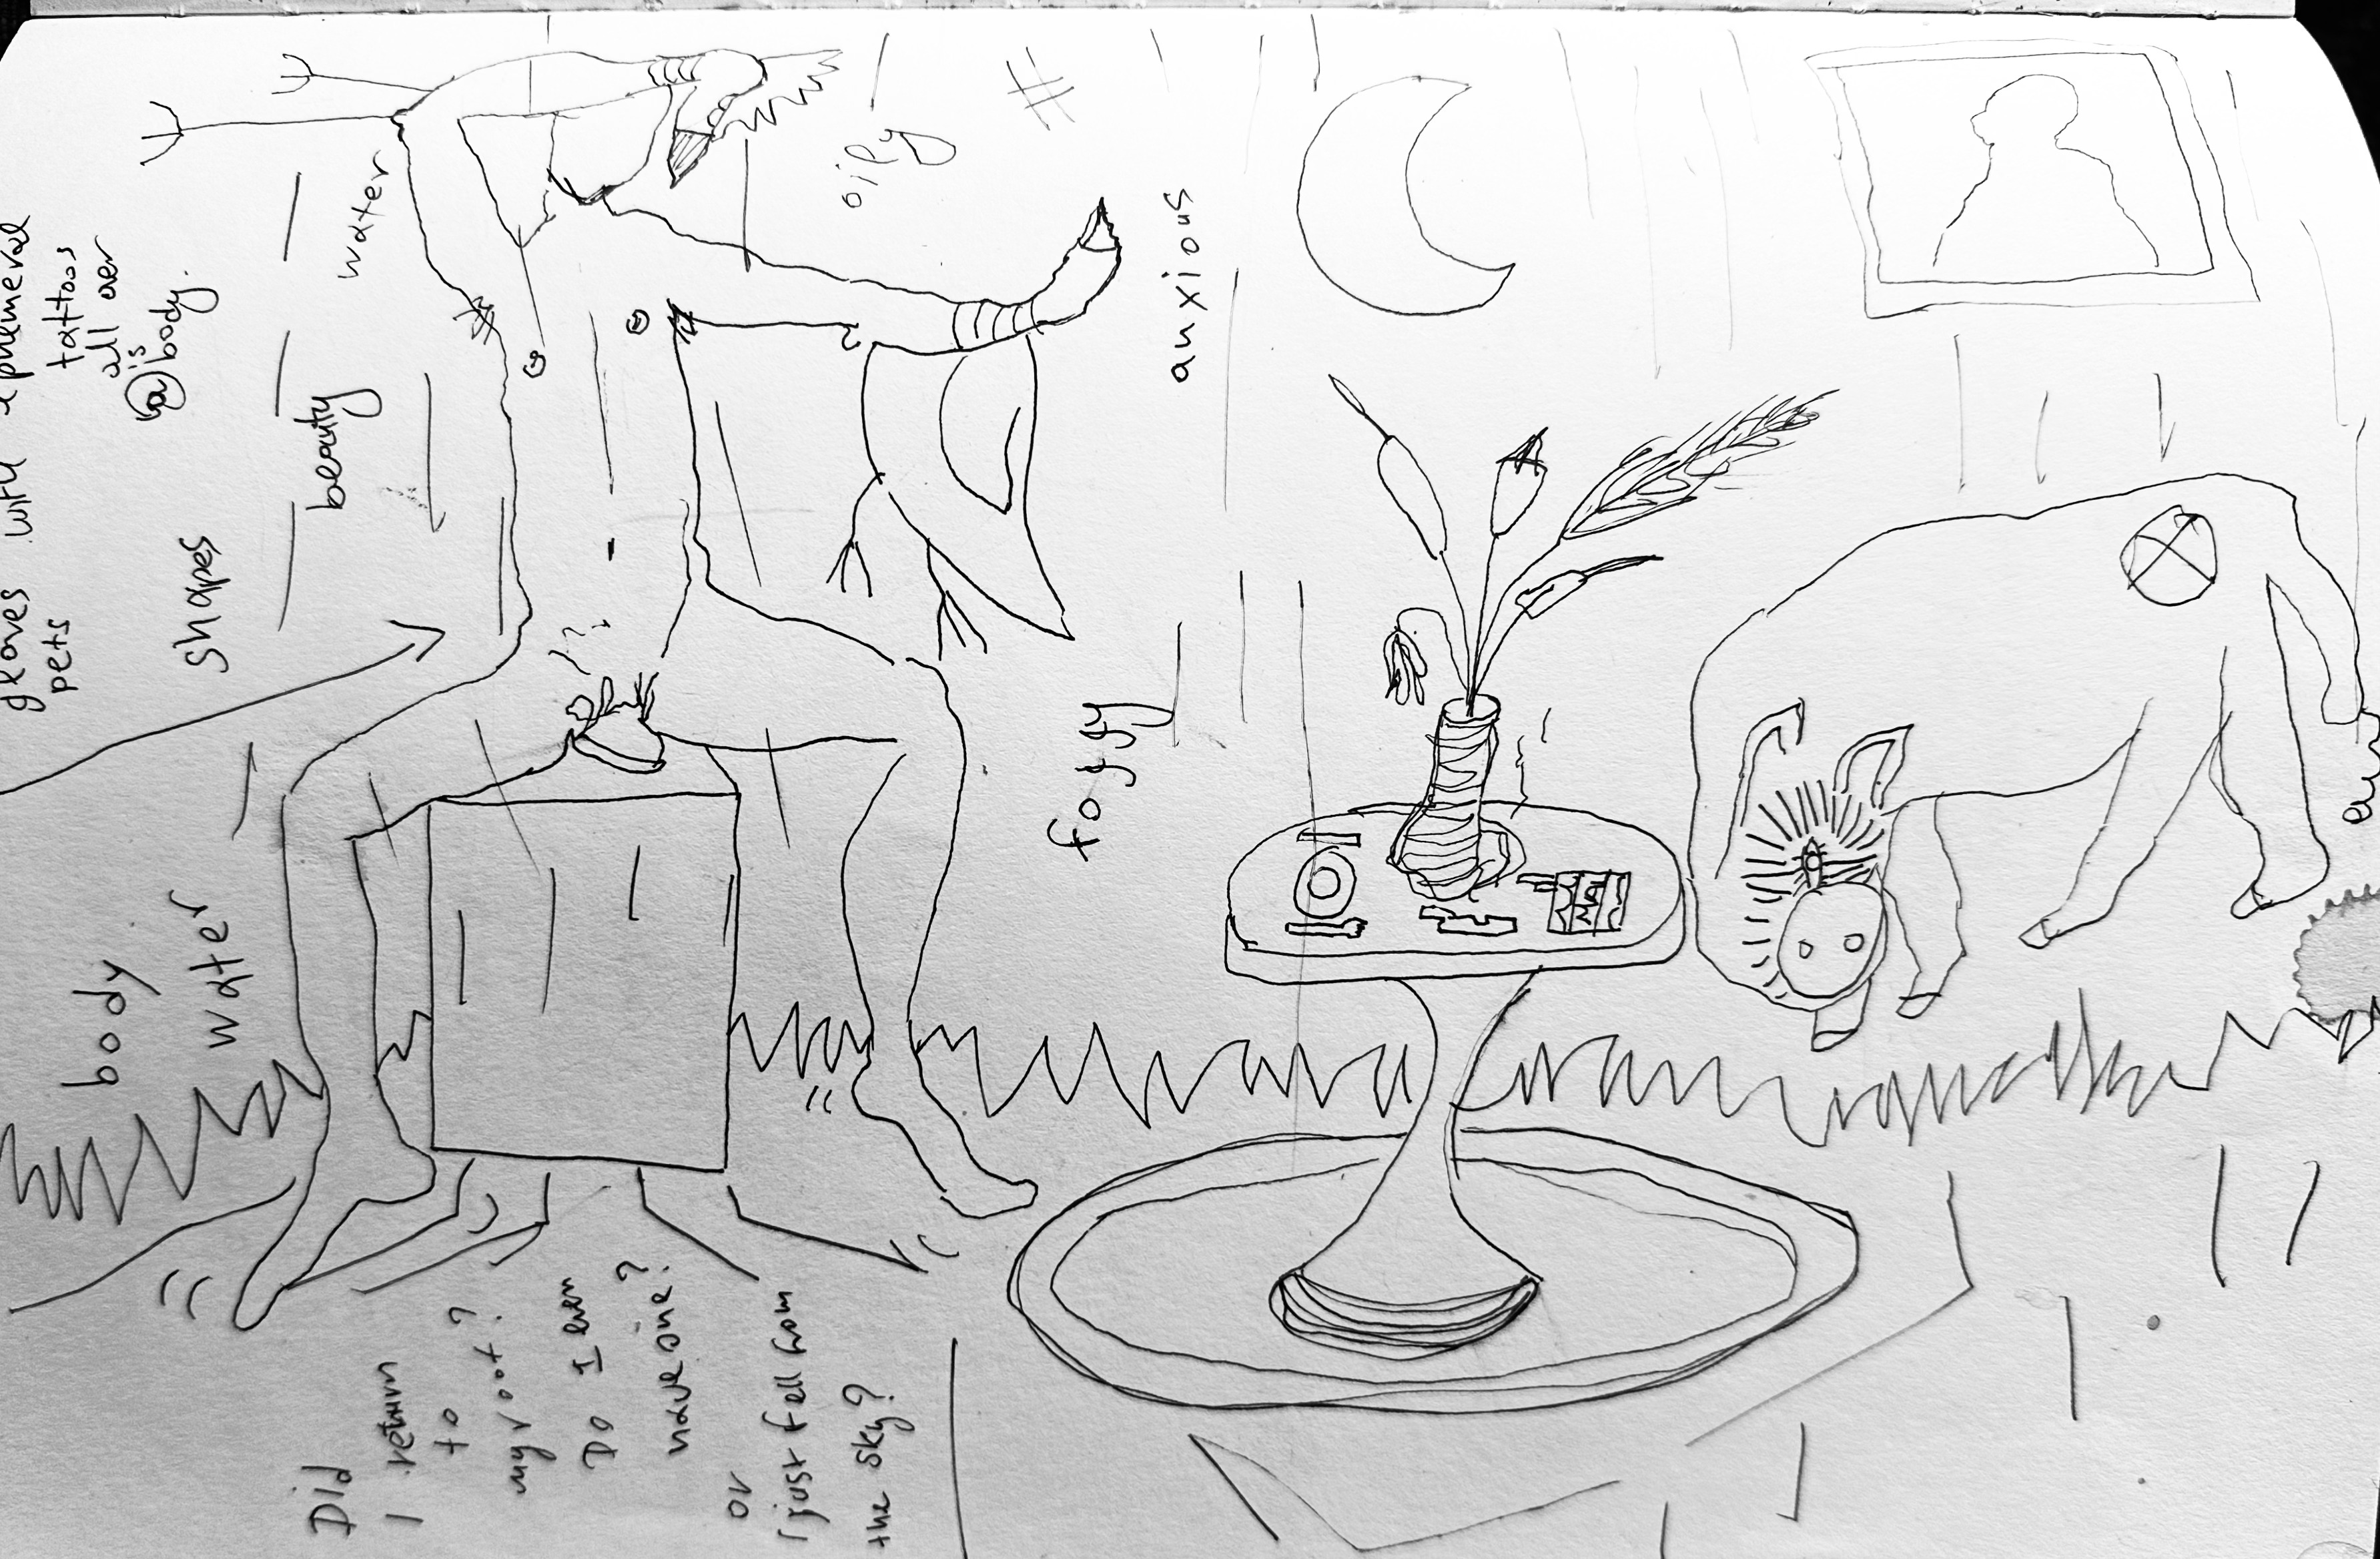 gloves with ephemeral
pets
tattoos
all over
is
(a) body.
shapes
beauty
water
oily
#
anxious
foggy
body
water
Did
I return
to ?
my root?
Do I even
have one?
or
I just fell from
the sky?